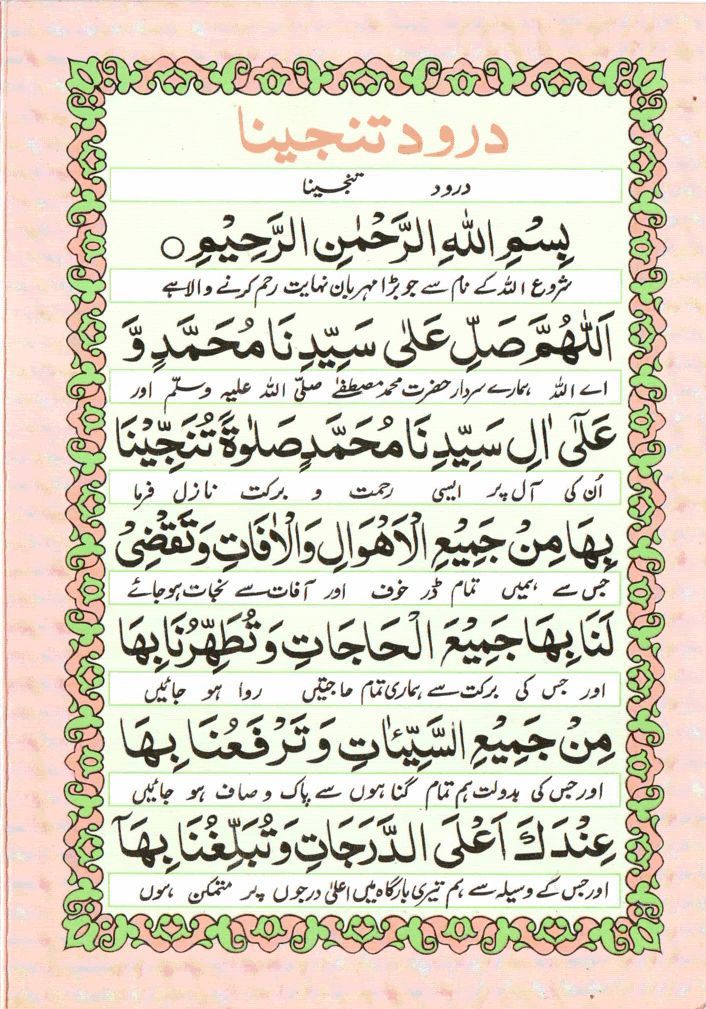 درود تنجینا
درود تنجینا
بِسْمِ اللهِ الرَّحْمٰنِ الرَّحِيْمِ ○
شروع اللہ کے نام سے جو بڑا مہربان نہایت رحم کرنے والا ہے
اَللّٰهُمَّ صَلِّ عَلٰى سَيِّدِنَا مُحَمَّدٍ وَّ
اے اللہ ہمارے سردار حضرت محمد مصطفےٰ صلّی اللہ علیہ وسلّم اور
عَلٰٓى اٰلِ سَيِّدِنَا مُحَمَّدٍ صَلٰوةً تُنَجِّيْنَا
اُن کی آل پر ایسی رحمت و برکت نازل فرما
بِهَا مِنْ جَمِيْعِ الْاَهْوَالِ وَالْاٰفَاتِ وَتَقْضِىْ
جس سے ہمیں تمام ڈر خوف اور آفات سے نجات ہوجائے
لَنَا بِهَا جَمِيْعَ الْحَاجَاتِ وَتُطَهِّرُنَا بِهَا
اور جس کی برکت سے ہماری تمام حاجتیں روا ہو جائیں
مِنْ جَمِيْعِ السَّيِّاٰتِ وَتَرْفَعُنَا بِهَا
اور جس کی بدولت ہم تمام گناہوں سے پاک و صاف ہو جائیں
عِنْدَكَ اَعْلَى الدَّرَجَاتِ وَتُبَلِّغُنَا بِهَآ
اور جس کے وسیلہ سے ہم تیری بارگاہ میں اعلیٰ درجوں پر متمکن ہوں